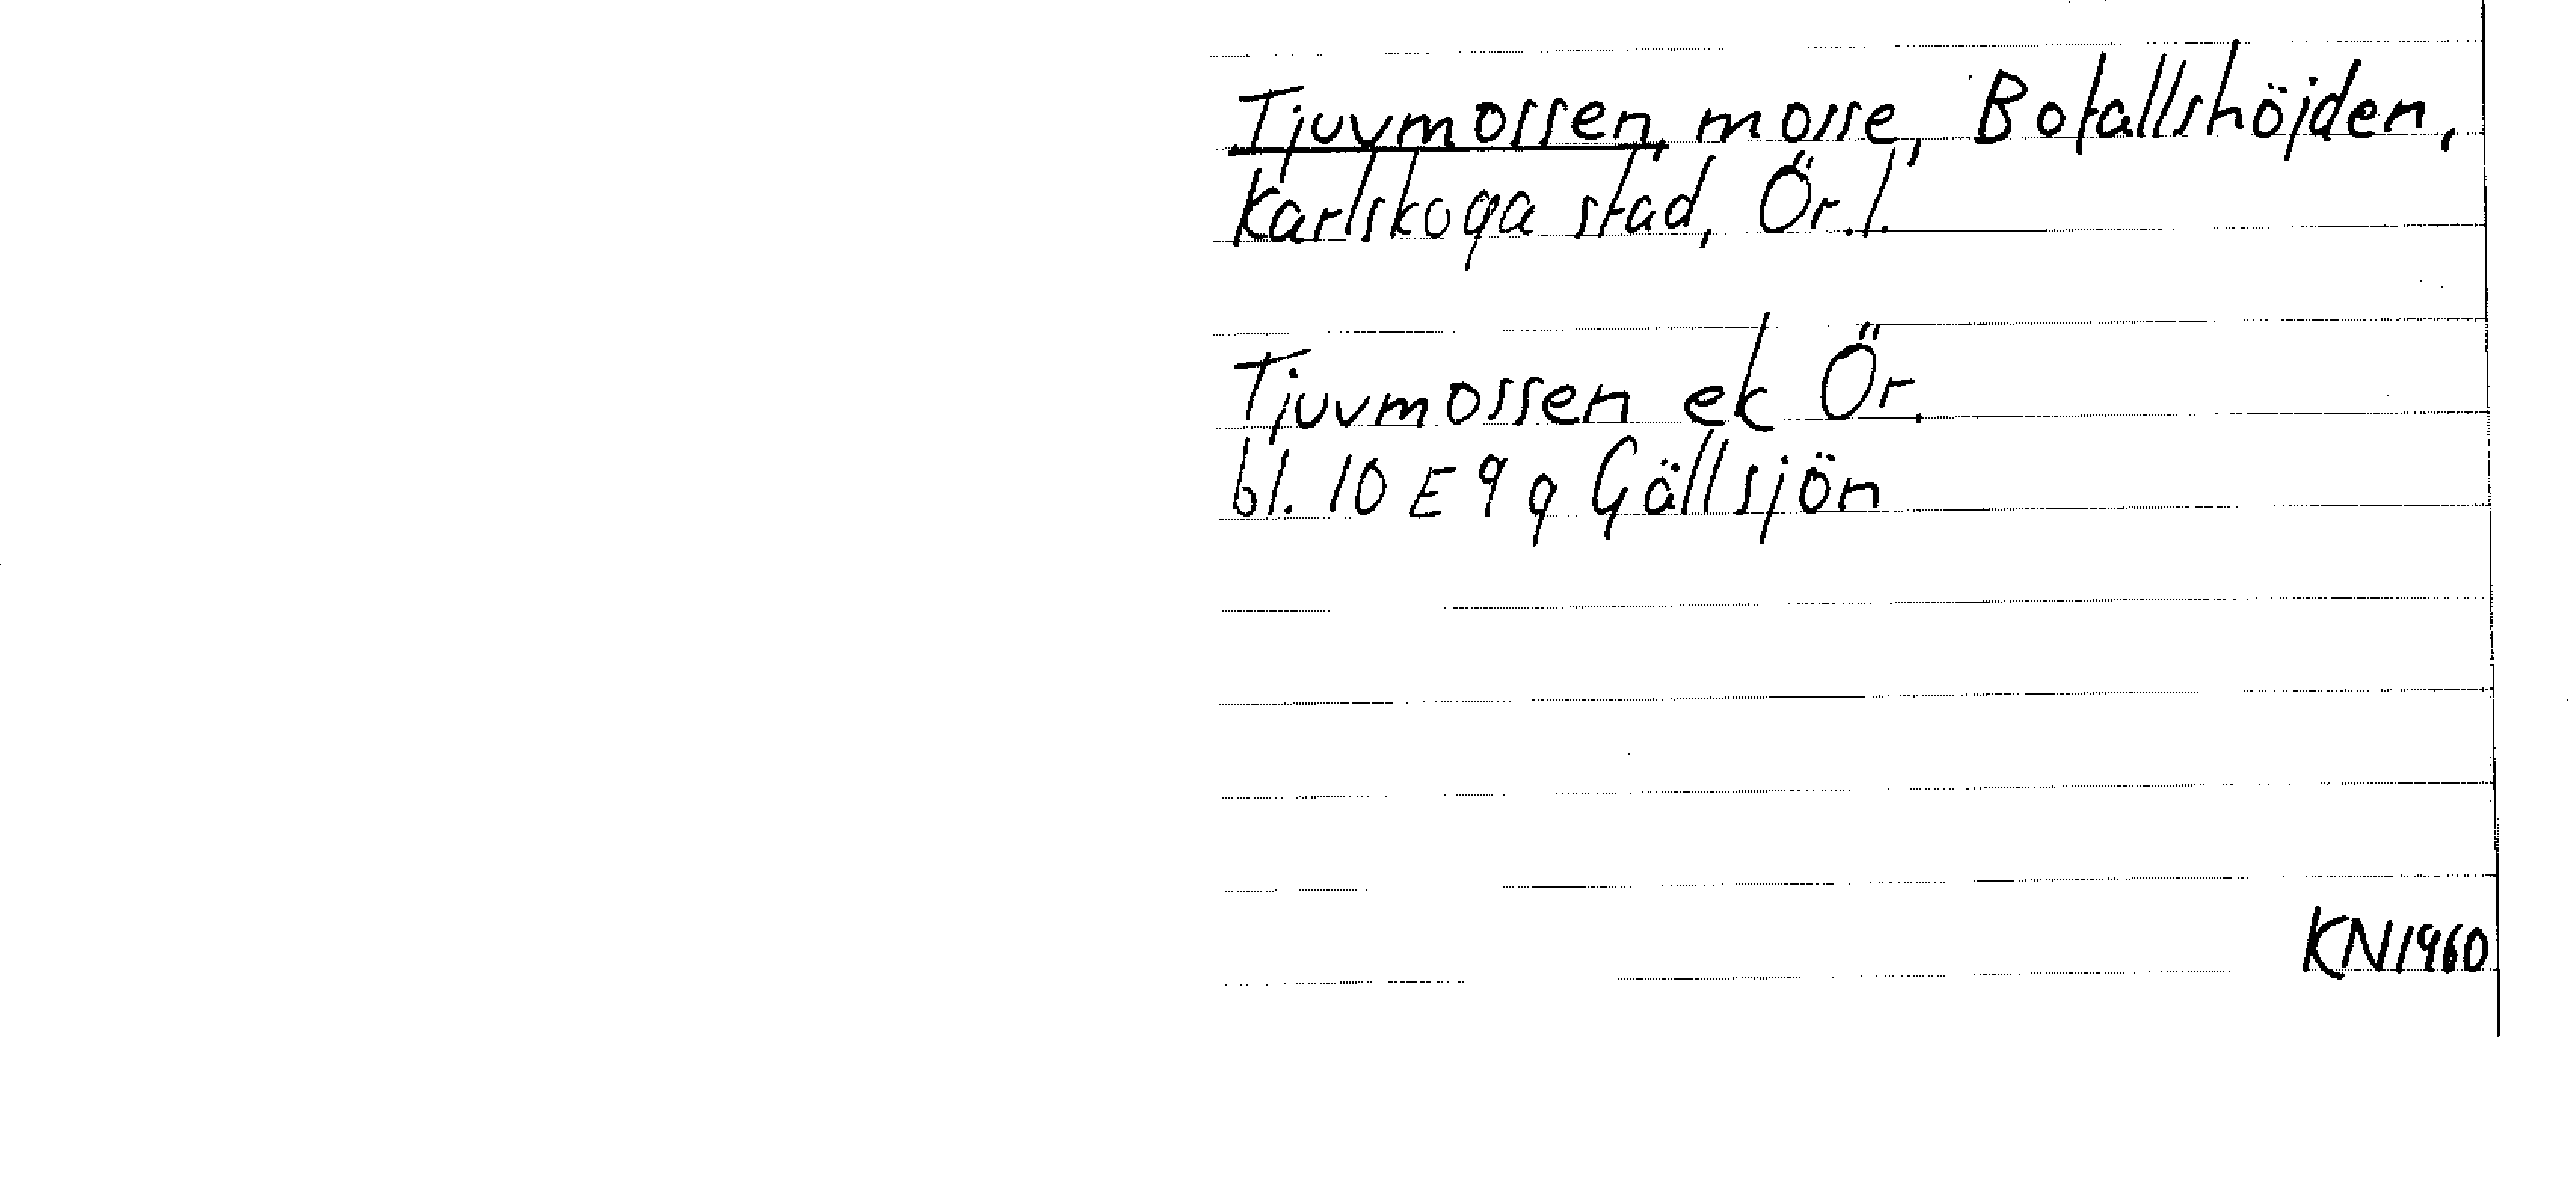 Tjuvmossen, mosse, Botallshöjden,
Karlskoga stad, Ör.l.
Tjuvmossen ek Ör.
bl. 10 E 9 g Gällsjön
KN1960